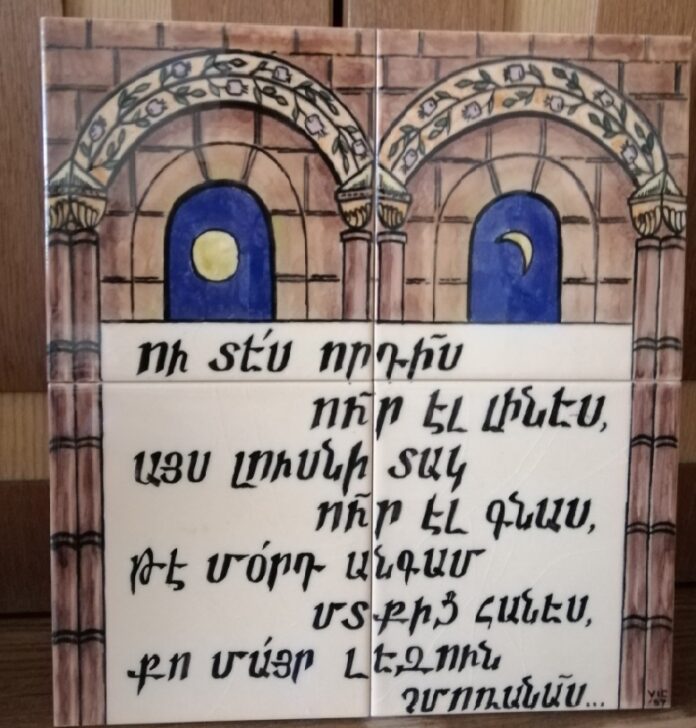 ՈՒ ՏԵ՛Ս ՈՐԴԻ՜Ս
ՈՒ՜Ր ԷԼ ԼԻՆԵՍ,
ԱՅՍ ԼՈՒՍՆԻ ՏԱԿ
ՈՒ՜Ր ԷԼ ԳՆԱՍ,
ԹԷ ՄՕՐԴ ԱՆԳԱՄ
ՄՏՔԻՑ ՀԱՆԵՍ,
ՔՈ ՄԱՅՐ ԼԵԶՈՒՆ
ՉՄՈՌԱՆԱ՜Ս...
VIC
'97